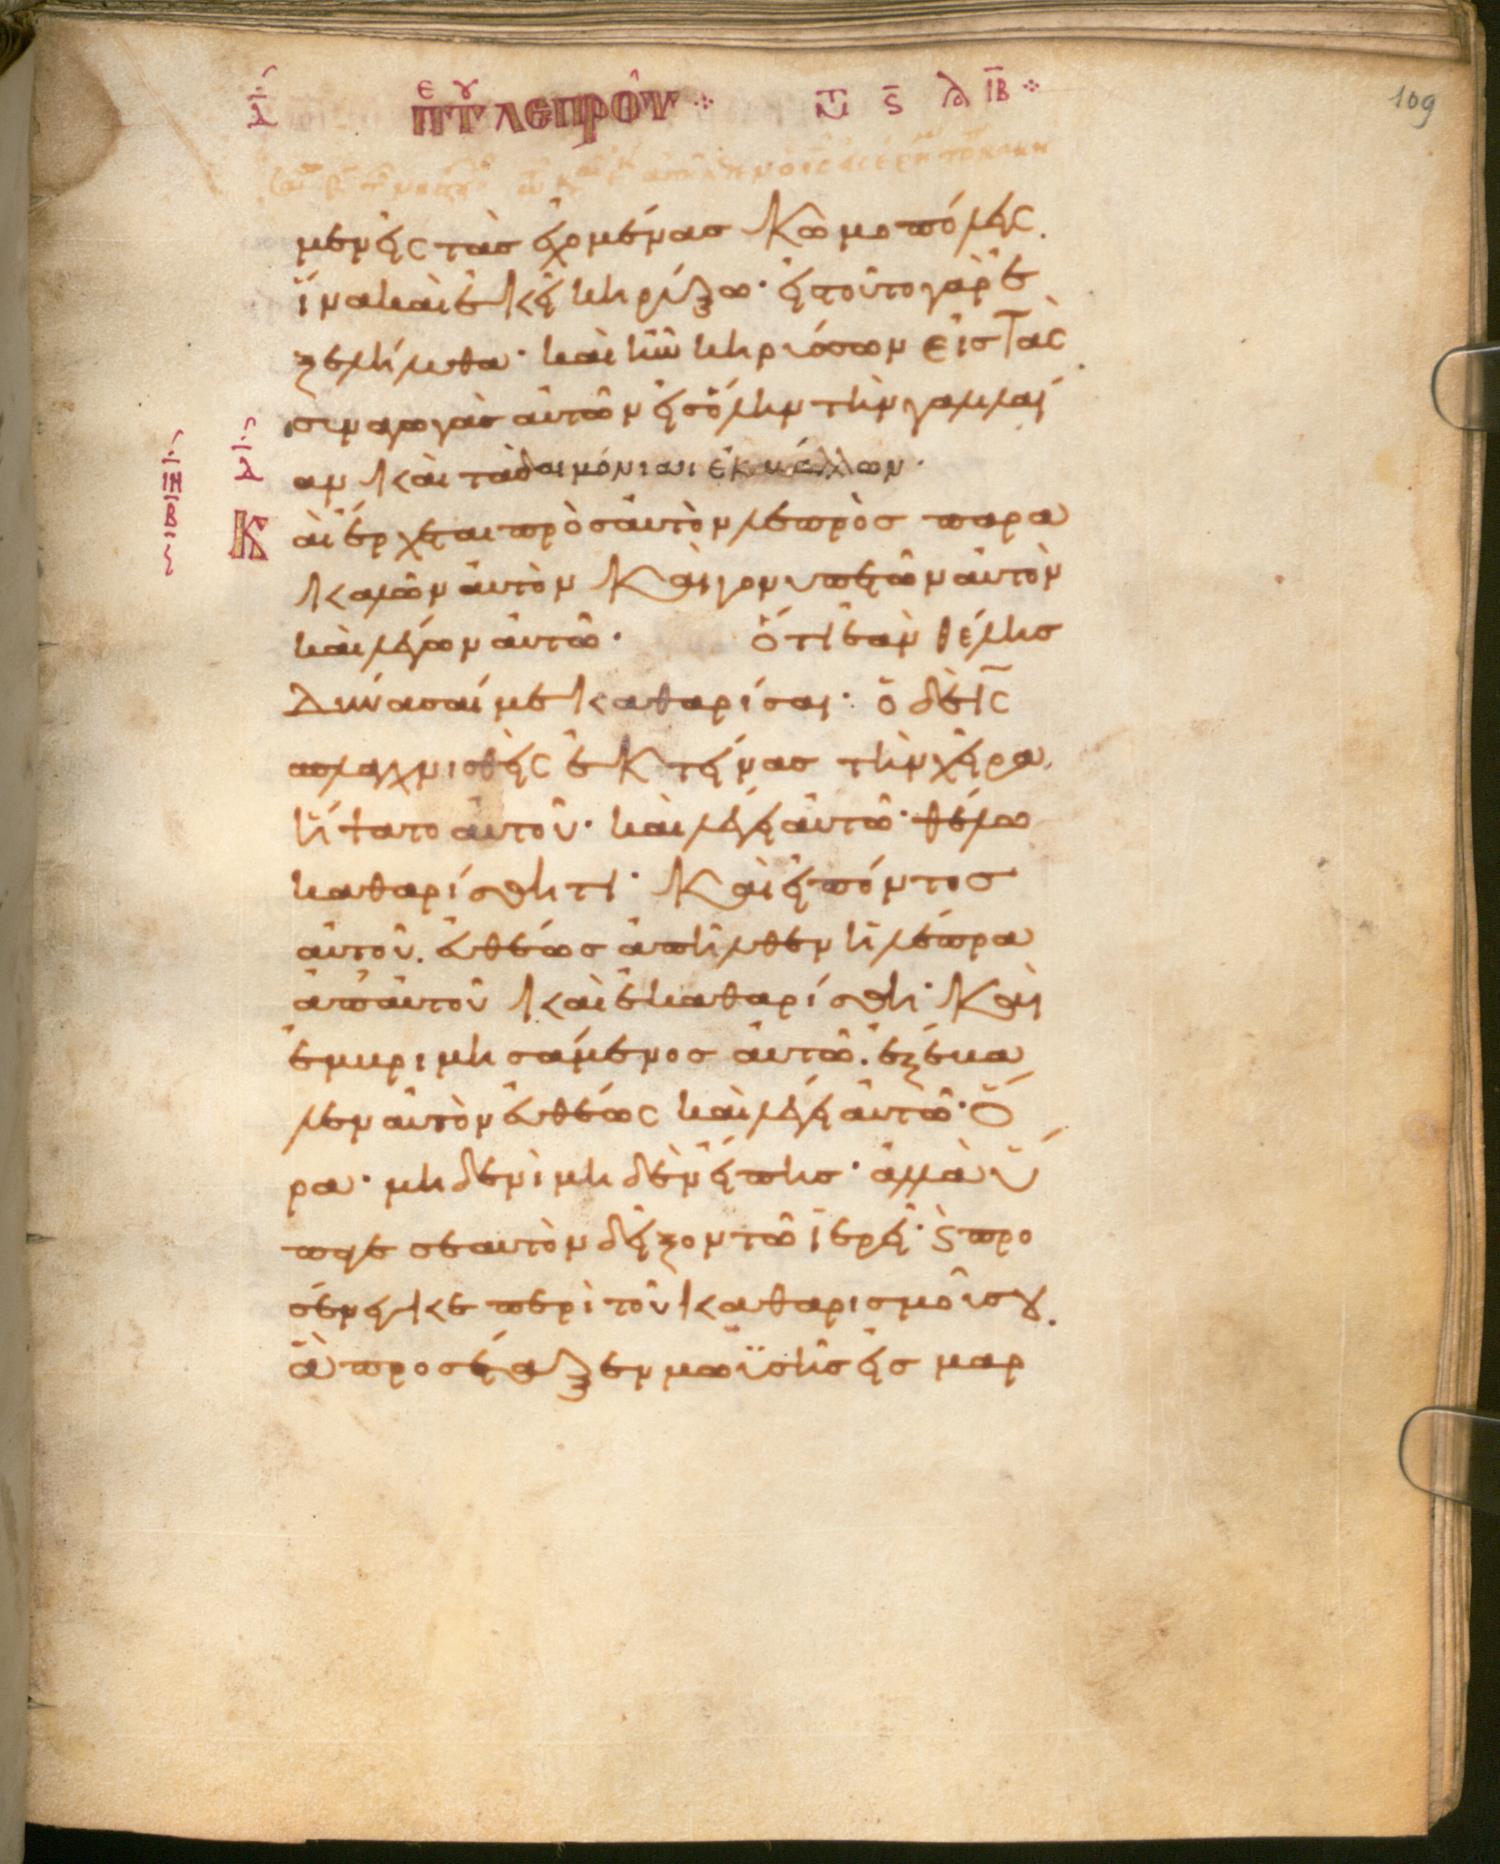 109
δ̅ περὶ τοῦ λεπροῦ
μένας τὰς ἐχομένας κωμοπόλεις.
ἵνα καὶ ἐκεῖ κηρύξω· εἰς τοῦτο γὰρ ἐ
ξελήλυθα· καὶ ἦν κηρύσσων εἰς τὰς
συναγωγὰς αὐτῶν εἰς ὅλην τὴν γαλιλαί
αν καὶ τὰ δαιμόνια ἐκβάλλων·
δ̅
ΙΗ
Β
Καὶ ἔρχεται πρὸς αὐτὸν λεπρὸς παρα
καλῶν αὐτὸν καὶ γονυπετῶν αὐτὸν
καὶ λέγων αὐτῶ· ὅτι ἐὰν θέλης
δύνασαί με καθαρίσαι· ὁ δὲ ι̅ς̅
σπλαγχνισθεὶς ἐκτείνας τὴν χεῖρα,
ἥψατο αὐτοῦ· καὶ λέγει αὐτῶ· θέλω
καθαρίσθητι· καὶ εἰπόντος
αὐτοῦ. εὐθέως ἀπῆλθεν ἡ λέπρα
ἀπ' αὐτοῦ καὶ ἐκαθαρίσθη· καὶ
ἐμβριμησάμενος αὐτῶ. ἐξέβα
λεν αὐτὸν εὐθέως καὶ λέγει αὐτῶ· ὅ
ρα· μηδενὶ μηδὲν εἴπης· ἀλλὰ ὕ
παγε σεαυτὸν δεῖξον τῶ ἱερεῖ· ϛ προ
σένεγκε περὶ τοῦ καθαρισμοῦ σου.
ἃ προσέταξεν μωϋσῆς εἰς μαρ